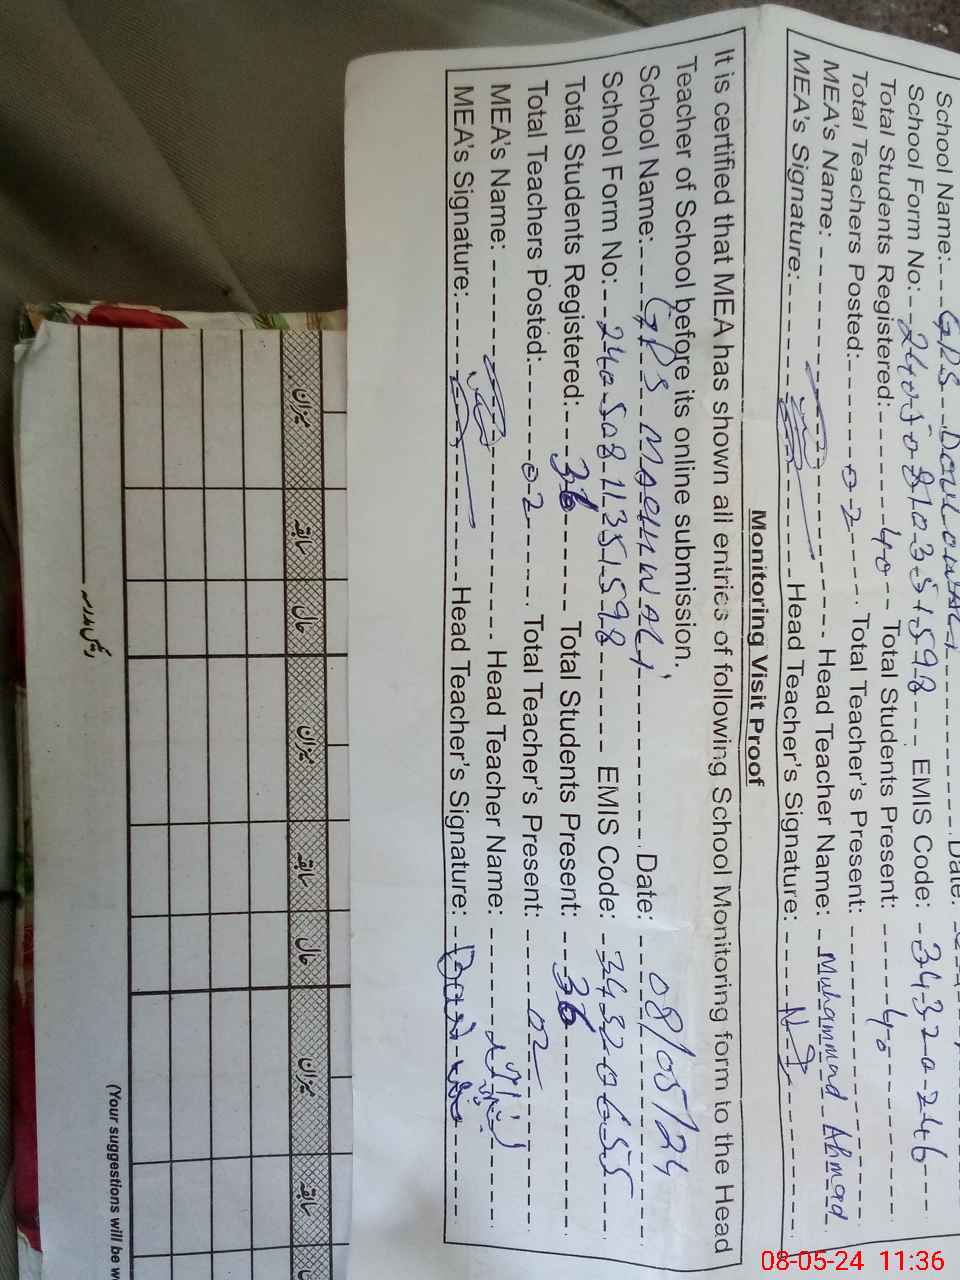 School Name: GPS Date:
School Form No: EMIS Code: 34320246
Total Students Registered: 40 Total Students Present: 40
Total Teachers Posted: 02 Total Teacher's Present:
MEA's Name: Head Teacher Name: Muhammad Ahmad
MEA's Signature: Head Teacher's Signature:
Monitoring Visit Proof
It is certified that MEA has shown all entries of following School Monitoring form to the Head
Teacher of School before its online submission.
School Name: GPS Date: 08/05/24
School Form No: 24050811351598 EMIS Code: 34320655
Total Students Registered: 36 Total Students Present: 36
Total Teachers Posted: 02 Total Teacher's Present: 02
MEA's Name: Head Teacher Name:
MEA's Signature: Head Teacher's Signature:
میزان سابقہ حال میزان سابقہ حال میزان سابقہ
(Your suggestions will be w
08-05-24 11:36